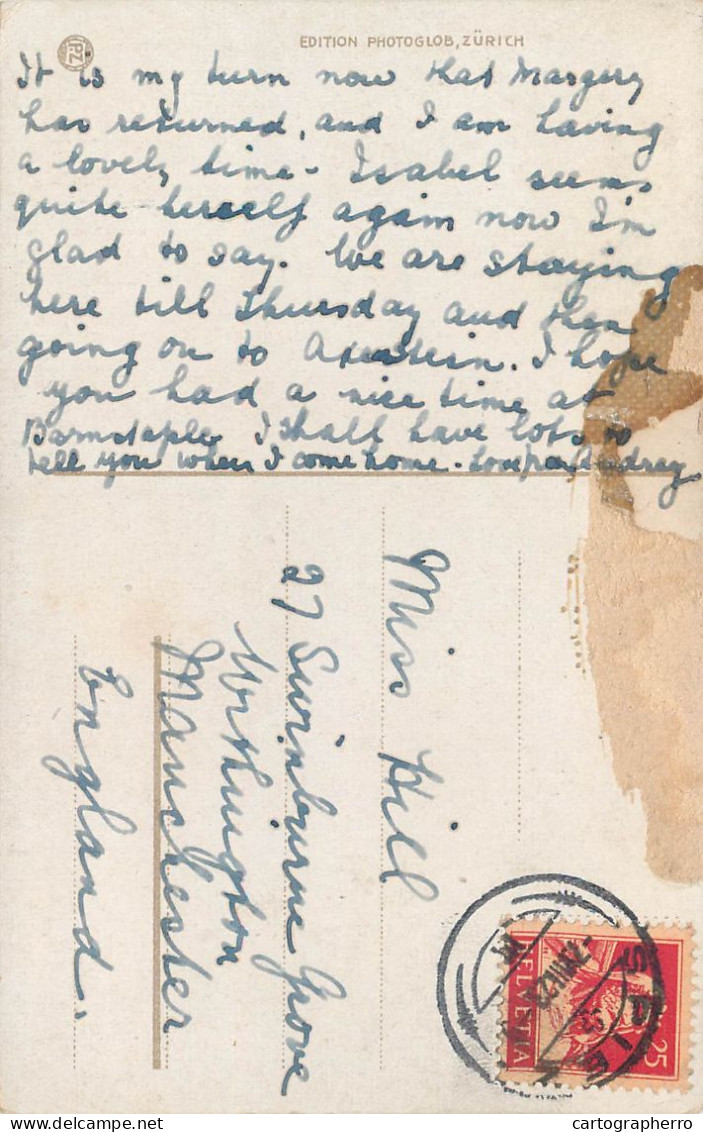 EDITION PHOTOGLOB, ZÜRICH
It is my turn now that Margery
has returned, and I am having
a lovely time - Isabel seems
quite herself again now I'm
glad to say. We are staying
here till Thursday and then
going on to Axenstein. I hope
you had a nice time at
Barnstaple I shall have lots to
tell you when I come home - Love from Audrey
Miss Hill
27 Swinburne Grove
Withington
Manchester
England.
SPIEZ
HELVETIA
25
cartographerro